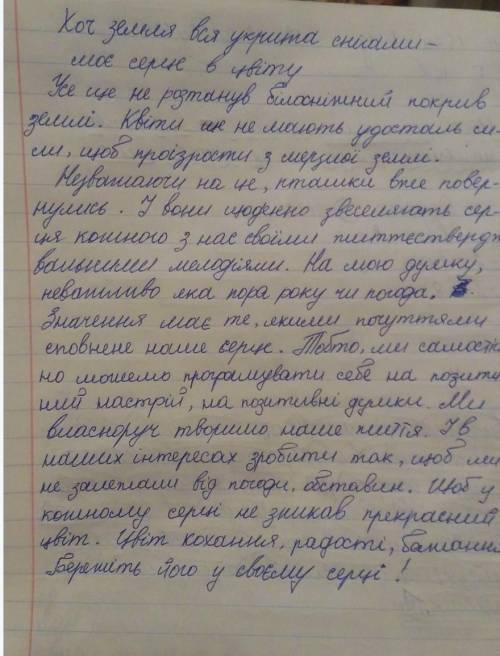 Хоч земля вся укрита снігами –
моє серце в цвіту
Уже ще не розтанув білосніжний покрив
землі. Квіти ще не мають удосталь си-
ли, щоб проізрости з мерзлої землі.
Незважаючи на це, пташки вже повер-
нулись. І вони щоденно звеселяють сер-
ця кожного з нас своїми життєстверд
вальними мелодіями. На мою думку,
неважливо яка пора року чи погода.
Значення має те, якими почуттями
сповнене наше серце. Тобто, ми самості
но можемо програмувати себе на позити
ний настрій, на позитивні думки. Ми
власноруч творимо наше життя. І в
наших інтересах зробити так, щоб ми
не залежали від погоди, обставин. Щоб у
кожному серці не зникав прекрасний
цвіт. Цвіт кохання, радості, бажання
Бережіть його у своєму серці!